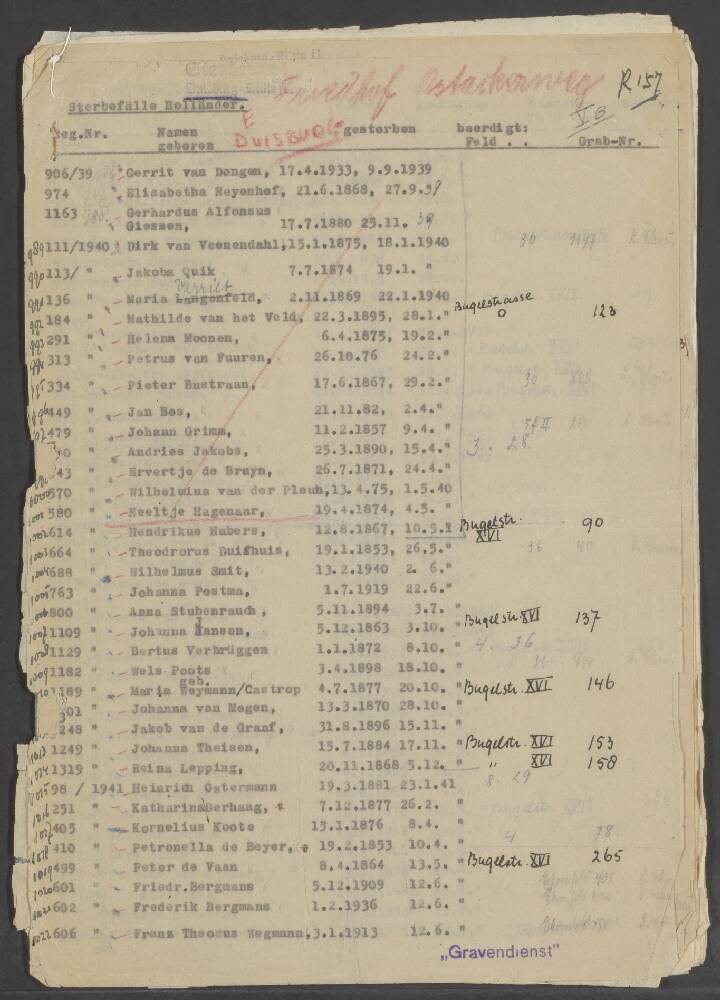 Friedhof Ostackerweg R.157
Sterbefälle Holländer. VB
E
DUISBURG
Reg.Nr. Namen gestorben beerdigt: Grab-Nr.
geboren Feld . .
906/39 Gerrit van Dongen, 17.4.1933, 9.9.1939
974 " Elisabetha Neyenhof, 21.6.1868, 27.9.39
1163 Gerhardus Alfonsus
Giessen, 17.7.1880 25.11. 39
989 111/1940 Dirk van Veenendahl, 15.1.1875, 18.1.1940
990 113/ " Jakoba Quik 7.7.1874 19.1. "
Verriet
991 136 " Maria Langenfeld, 2.11.1869 22.1.1940 Bugelstrasse
992 184 " Mathilde van het Veld, 22.3.1895, 28.1." 0 123
993 291 " Helena Moonen, 6.4.1875, 19.2."
994 313 " Petrus van Fuuren, 26.10.76 24.2."
995 334 " Pieter Bustraan, 17.6.1867, 29.2."
449 " Jan Bos, 21.11.82, 2.4."
479 " Johann Grimm, 11.2.1857 9.4. "
90 " Andries Jakobs, 25.3.1890, 15.4." 3. 28
43 " Ervertje de Bruyn, 26.7.1871, 24.4."
1000 570 " Wilhelmina van der Pleuh, 13.4.75, 1.5.40
1001 580 " Neeltje Hagenaar, 19.4.1874, 4.5. "
1002 614 " Hendrikus Hubers, 12.8.1867, 10.5.1 Bugelstr. XVI 90
1003 664 " Theodrorus Duifhuis, 19.1.1853, 26.5."
1004 688 " Wilhelmus Smit, 13.2.1940 2. 6."
1005 763 " Johanna Postma, 1.7.1919 22.6."
1006 800 " Anna Stubenrauch, 5.11.1894 3.7. " Bugelstr. XVI 137
1007 1109 " Johanna Jansen, 5.12.1863 3.10. "
1008 1129 " Bertus Verbrüggen 1.1.1872 8.10. " 4. 26
1009 1182 " Wels Poots 3.4.1898 18.10. "
geb.
1010 1189 " Maria Weymann/Castrop 4.7.1877 20.10. " Bugelstr. XVI 146
301 " Johanna van Megen, 13.3.1870 28.10. "
248 " Jakob van de Graaf, 31.8.1896 15.11. "
1013 1249 " Johanna Theisen, 15.7.1884 17.11. " Bugelstr. XVI 153
1014 1319 " Reina Lepping, 20.11.1868 5.12. " " XVI 158
1015 98 / 1941 Heinrich Ostermann 19.3.1881 23.1.41 8. 29
1016 251 " Katharina Derhaag, 7.12.1877 26.2. "
1017 405 " Kornelius Koote 15.1.1876 8.4. " 4 78
1018 410 " Petronella de Beyer, 19.2.1853 10.4. "
1019 499 " Peter de Vaan 8.4.1864 13.5. " Bugelstr. XVI 265
1020 601 " Friedr.Bergmans 5.12.1909 12.6. "
1021 602 " Frederik Bergmans 1.2.1936 12.6. "
1022 606 " Franz Theodus Wegmann, 3.1.1913 12.6. "
„Gravendienst"